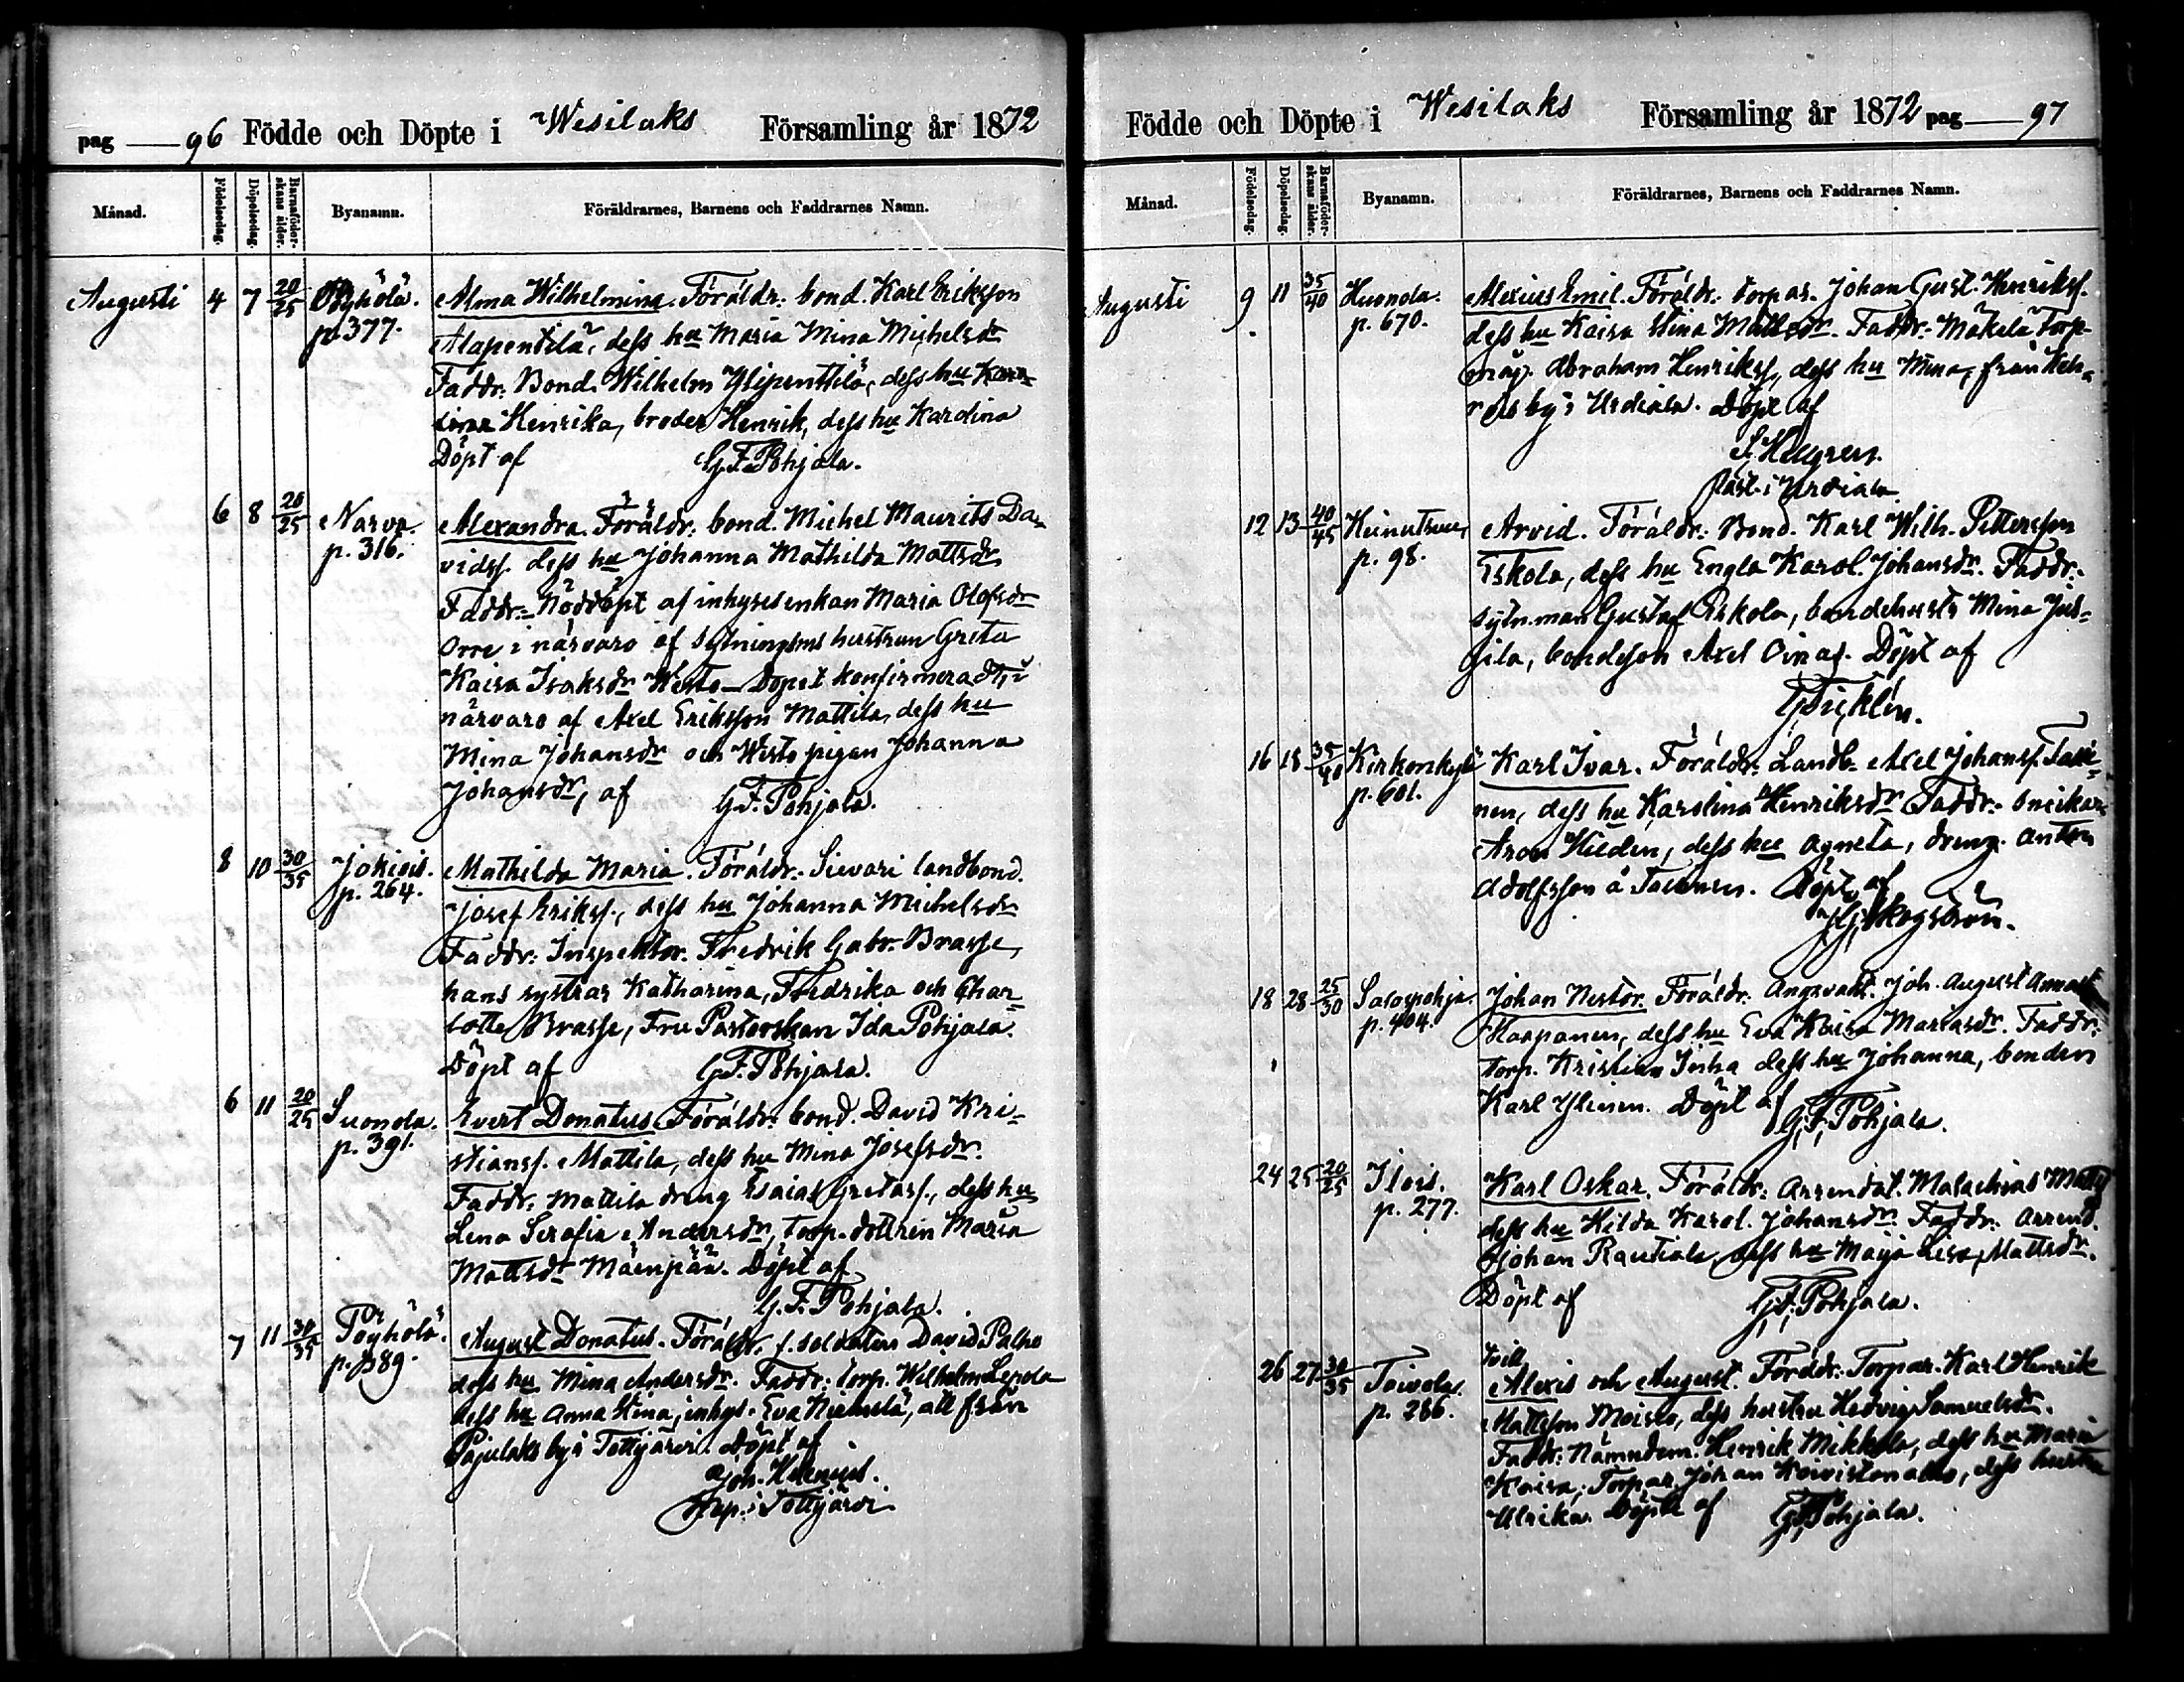 pag 96 Födde och Döpte i Wesilaks Församling år 1872
Månad. Födelsedag. Döpelsedag. Barnaföderskans ålder. Byanamn. Föräldrarnes, Barnens och Faddrarnes Namn.
Augusti 4 7 20/25 Pöyhölä. p. 377. Alma Wilhelmina. Föräldr: bond. Karl Eriksson
Alapentilä, dess hu Maria Mina Michelsdr
Faddr: Bond. Wilhelm Ylipenttilä, dess hu
Henrika, broder Henrik, dess hu Karolina
Döpt af G. F. Pohjala.
6 8 20/25 Narva p. 316. Alexandra. Föräldr: bond. Michel Maurits Da-
vidss. dess hu Johanna Mathilda Mattsdr
Faddr: Nöddöpt af inhyses enkan Maria Olofsdr
Orre i närvaro af sytningsms hustrun Greta
Kaisa Isaksdr Westo – Dopet konfirmeradt, i
närvaro af Axel Eriksson Mattila, dess hu
Mina Johansdr och Westo pigan Johanna
Johansdr, af G. F. Pohjala.
8 10 30/35 Jokiois. p. 264. Mathilda Maria. Föräldr: Sievari landbond.
Josef Erikss., dess hu Johanna Michelsdr
Faddr: Inspektor. Fredrik Gabr. Brasse,
hans systrar Katharina, Fredrika och Char-
lotte Brasse, Fru Pastorskan Ida Pohjala.
Döpt af G. F. Pohjala.
6 11 20/25 Suonola. p. 391. Evert Donatus. Föräldr: bond. David Kri-
stianss. Mattila, dess hu Mina Josefsdr.
Faddr: Mattila dreng Esaias Gretass., dess hu
Lena Serafia Andersdr, torp. dottren Maria
Mattsdr Mäenpää. Döpt af
G. F. Pohjala.
7 11 30/35 Pöyhölä. p. 389. August Donatus. Föräldr. f. soldaten David Palho
dess hu Mina Andersdr. Faddr: torp. Wilhelm Lepola
dess hu Anna Stina, inhys. Eva, all från
Pajulaks by i Tottijärvi. Döpt af
Joh. Helenius.
Kap. i Tottijärvi
Födde och Döpte i Wesilaks Församling år 1872 pag 97
Månad. Födelsedag. Döpelsedag. Barnaföderskans ålder. Byanamn. Föräldrarnes, Barnens och Faddrarnes Namn.
Augusti 9 11 35/40 Huonola. p. 670. Alexius Emil. Föräldr: torpar. Johan Gust. Henrikss.
dess hu Kaisa Stina Mattsdr. Faddr: Mäkelä torp-
Abraham Henrikss, dess hu Mina, från
by i Urdiala. Döpt af
past. i Urdiala
12 13 40/45 p. 98. Arvid. Föräldr: Bond. Karl Wilh. Pettersson
Eskola, dess hu Engla Karol. Johansdr. Faddr:
sytn.man Gustaf Eskola, bondehustr Mina Jus-
sila, bondeson Axel Oinas. Döpt af
16 18 35/40 Kirkonkylä p. 601. Karl Ivar. Föräldr: Landb. Axel Johanss. Tass-
nen, dess hu Karolina Henriksdr Faddr: snickar
Aron Hilden, dess hu Agneta, dreng. Anton
Adolfsson å. Döpt af
Skogström.
18 28 25/30 Salospohja. p. 404. Johan Nestor. Föräldr: Joh. August
Karpanen, dess hu Eva Kaisa Mariasdr. Faddr:
torp. Kristian Inha dess hu Johanna, bonden
Karl Ylinen. Döpt af
G. F. Pohjala.
24 25 20/25 Ilois. p. 277. Karl Oskar. Föräldr: Arrendat. Malachias Matts
dess hu Hilda Karol. Johansdr. Faddr: Arrend.
Johan Rautiala, dess hu Maija Lisa Mattsdr.
Döpt af G. F. Pohjala.
26 27 30/35 Toivola. p. 286. tvill.
Alexis och August. Föräldr: Torpar. Karl Henrik
Mattsson Moisio, dess hustru Hedvig Samuelsdr.
Faddr: Nämndem. Henrik Mikkola, dess hu Maria
Kaisa, Torpar. Johan Koivistonalho, dess hustru
Ulrika. Döpte af G. F. Pohjala.